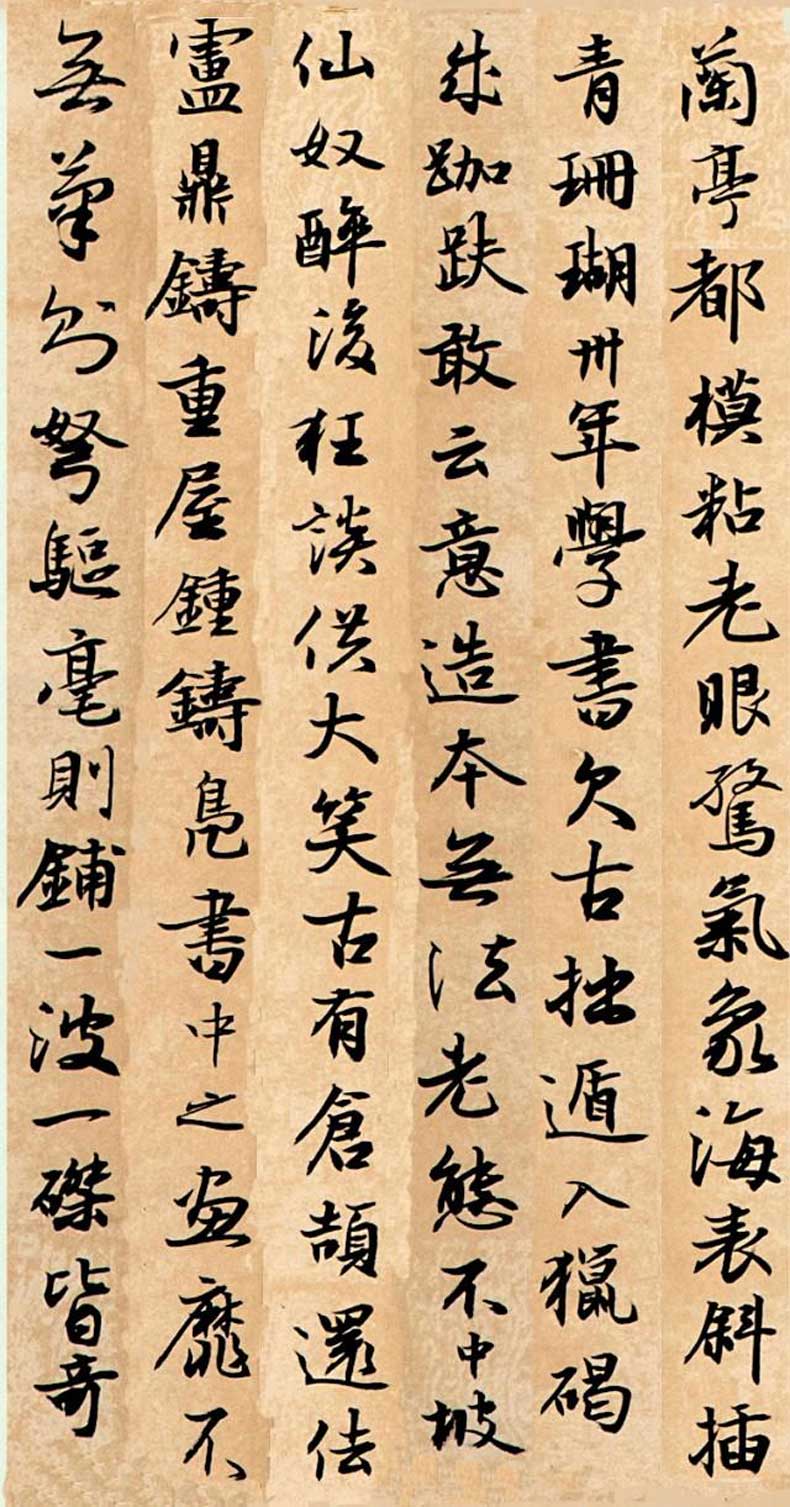 蘭亭都模粘老眼騖氣象海表斜插
青珊瑚卅年學書欠古拙遁入獵碣
成跏趺敢云意造本無法老態不中坡
仙奴醉後狂談供大笑古有倉頡還佉
盧鼎鑄重屋鍾鑄鳧書中之畫靡不
無弩驅毫則鋪一波一磔皆奇